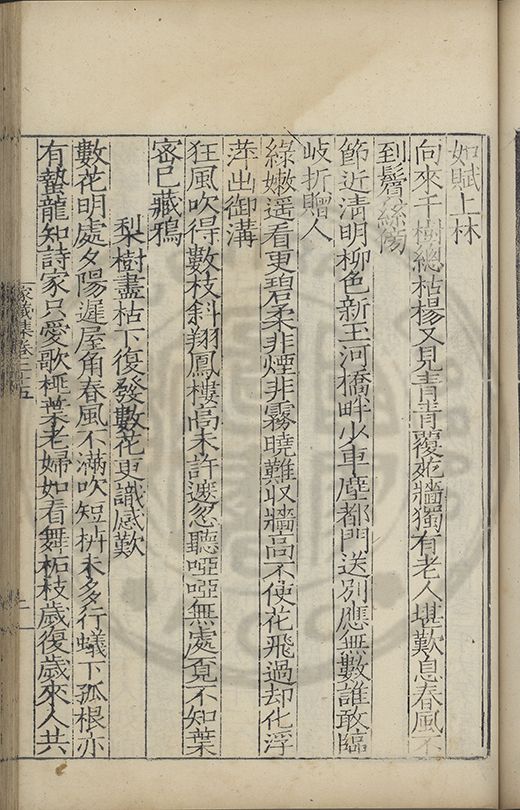 如賦上林
向來千樹總枯楊又見青青覆苑牆獨有老人堪歎息春風不
到鬢絲傍
節近清明柳色新玉河橋畔少車塵都門送別應無數誰敢臨
岐折贈人
綠嫩遥看更碧柔非煙非霧曉難収牆高不使花飛過却化浮
萍出御溝
狂風吹得數枝斜翔鳳樓高未許遮忽聽啞啞無處覔不知葉
密已藏鴉
梨樹盡枯下復發數花更識感歎
數花明處夕陽遲屋角春風不滿吹短枿未多行蟻下孤根亦
有蟄龍知詩家只愛歌桠葉老婦如看舞柘枝歲復歲來人共
家藏集卷二十五
二